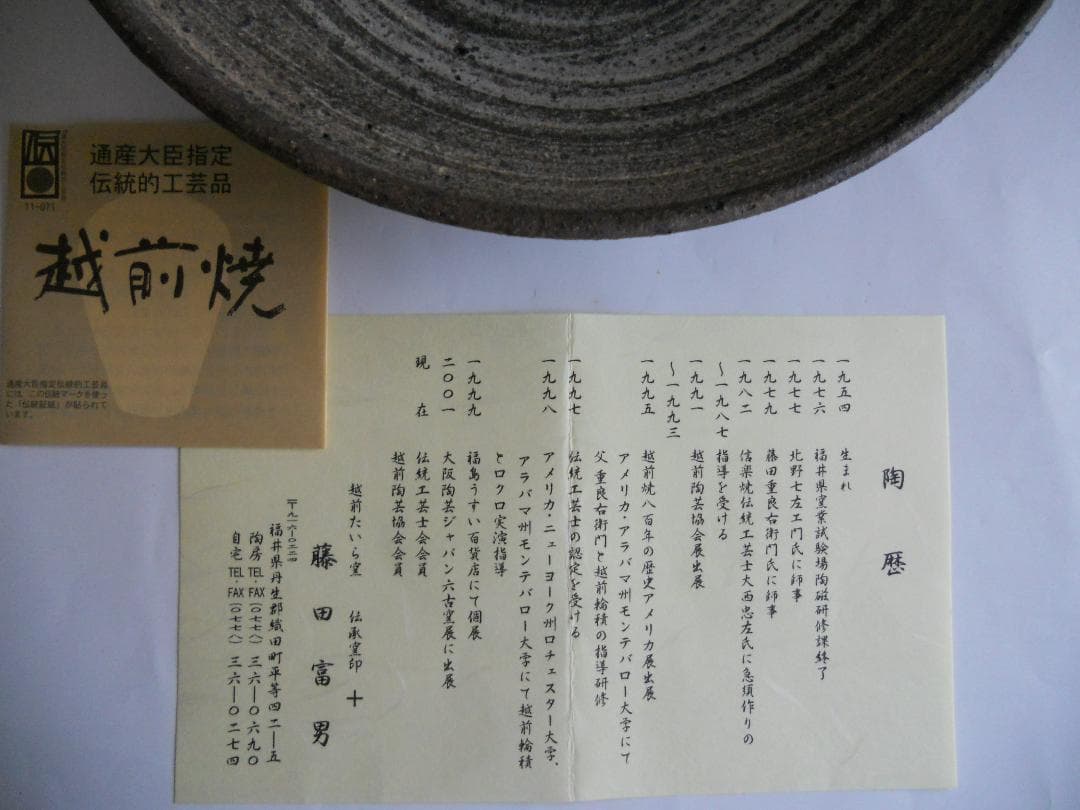 伝
11-071
通産大臣指定
伝統的工芸品
越前焼
通産大臣指定伝統的工芸品
には、この伝統マークを使っ
た「伝統証紙」が貼られて
います。
陶歴
一九五四 生まれ
一九七六 福井県窯業試験場陶磁研修課終了
一九七七 北野七左エ門氏に師事
一九七九 藤田重良右衛門氏に師事
一九八二 信楽焼伝統工芸士大西忠左氏に急須作りの
〜一九八七 指導を受ける
一九九一 越前陶芸協会展出展
〜一九九三
一九九五 越前焼八百年の歴史アメリカ展出展
アメリカ・アラバマ州モンテバロー大学にて
父重良右衛門と越前輪積の指導研修
一九九七 伝統工芸士の認定を受ける
一九九八 アメリカ・ニューヨーク州ロチェスター大学、
アラバマ州モンテバロー大学にて越前輪積
とロクロ実演指導
一九九九 福島うすい百貨店にて個展
二〇〇一 大阪陶芸ジャパン六古窯展に出展
現在 伝統工芸士会会員
越前陶芸協会会員
越前たいら窯 伝承窯印 十
藤田富男
〒九一六―〇二二四
福井県丹生郡織田町平等四二―五
陶房 TEL・FAX(〇七七八)三六―〇六九〇
自宅 TEL・FAX(〇七七八)三六―〇二七四